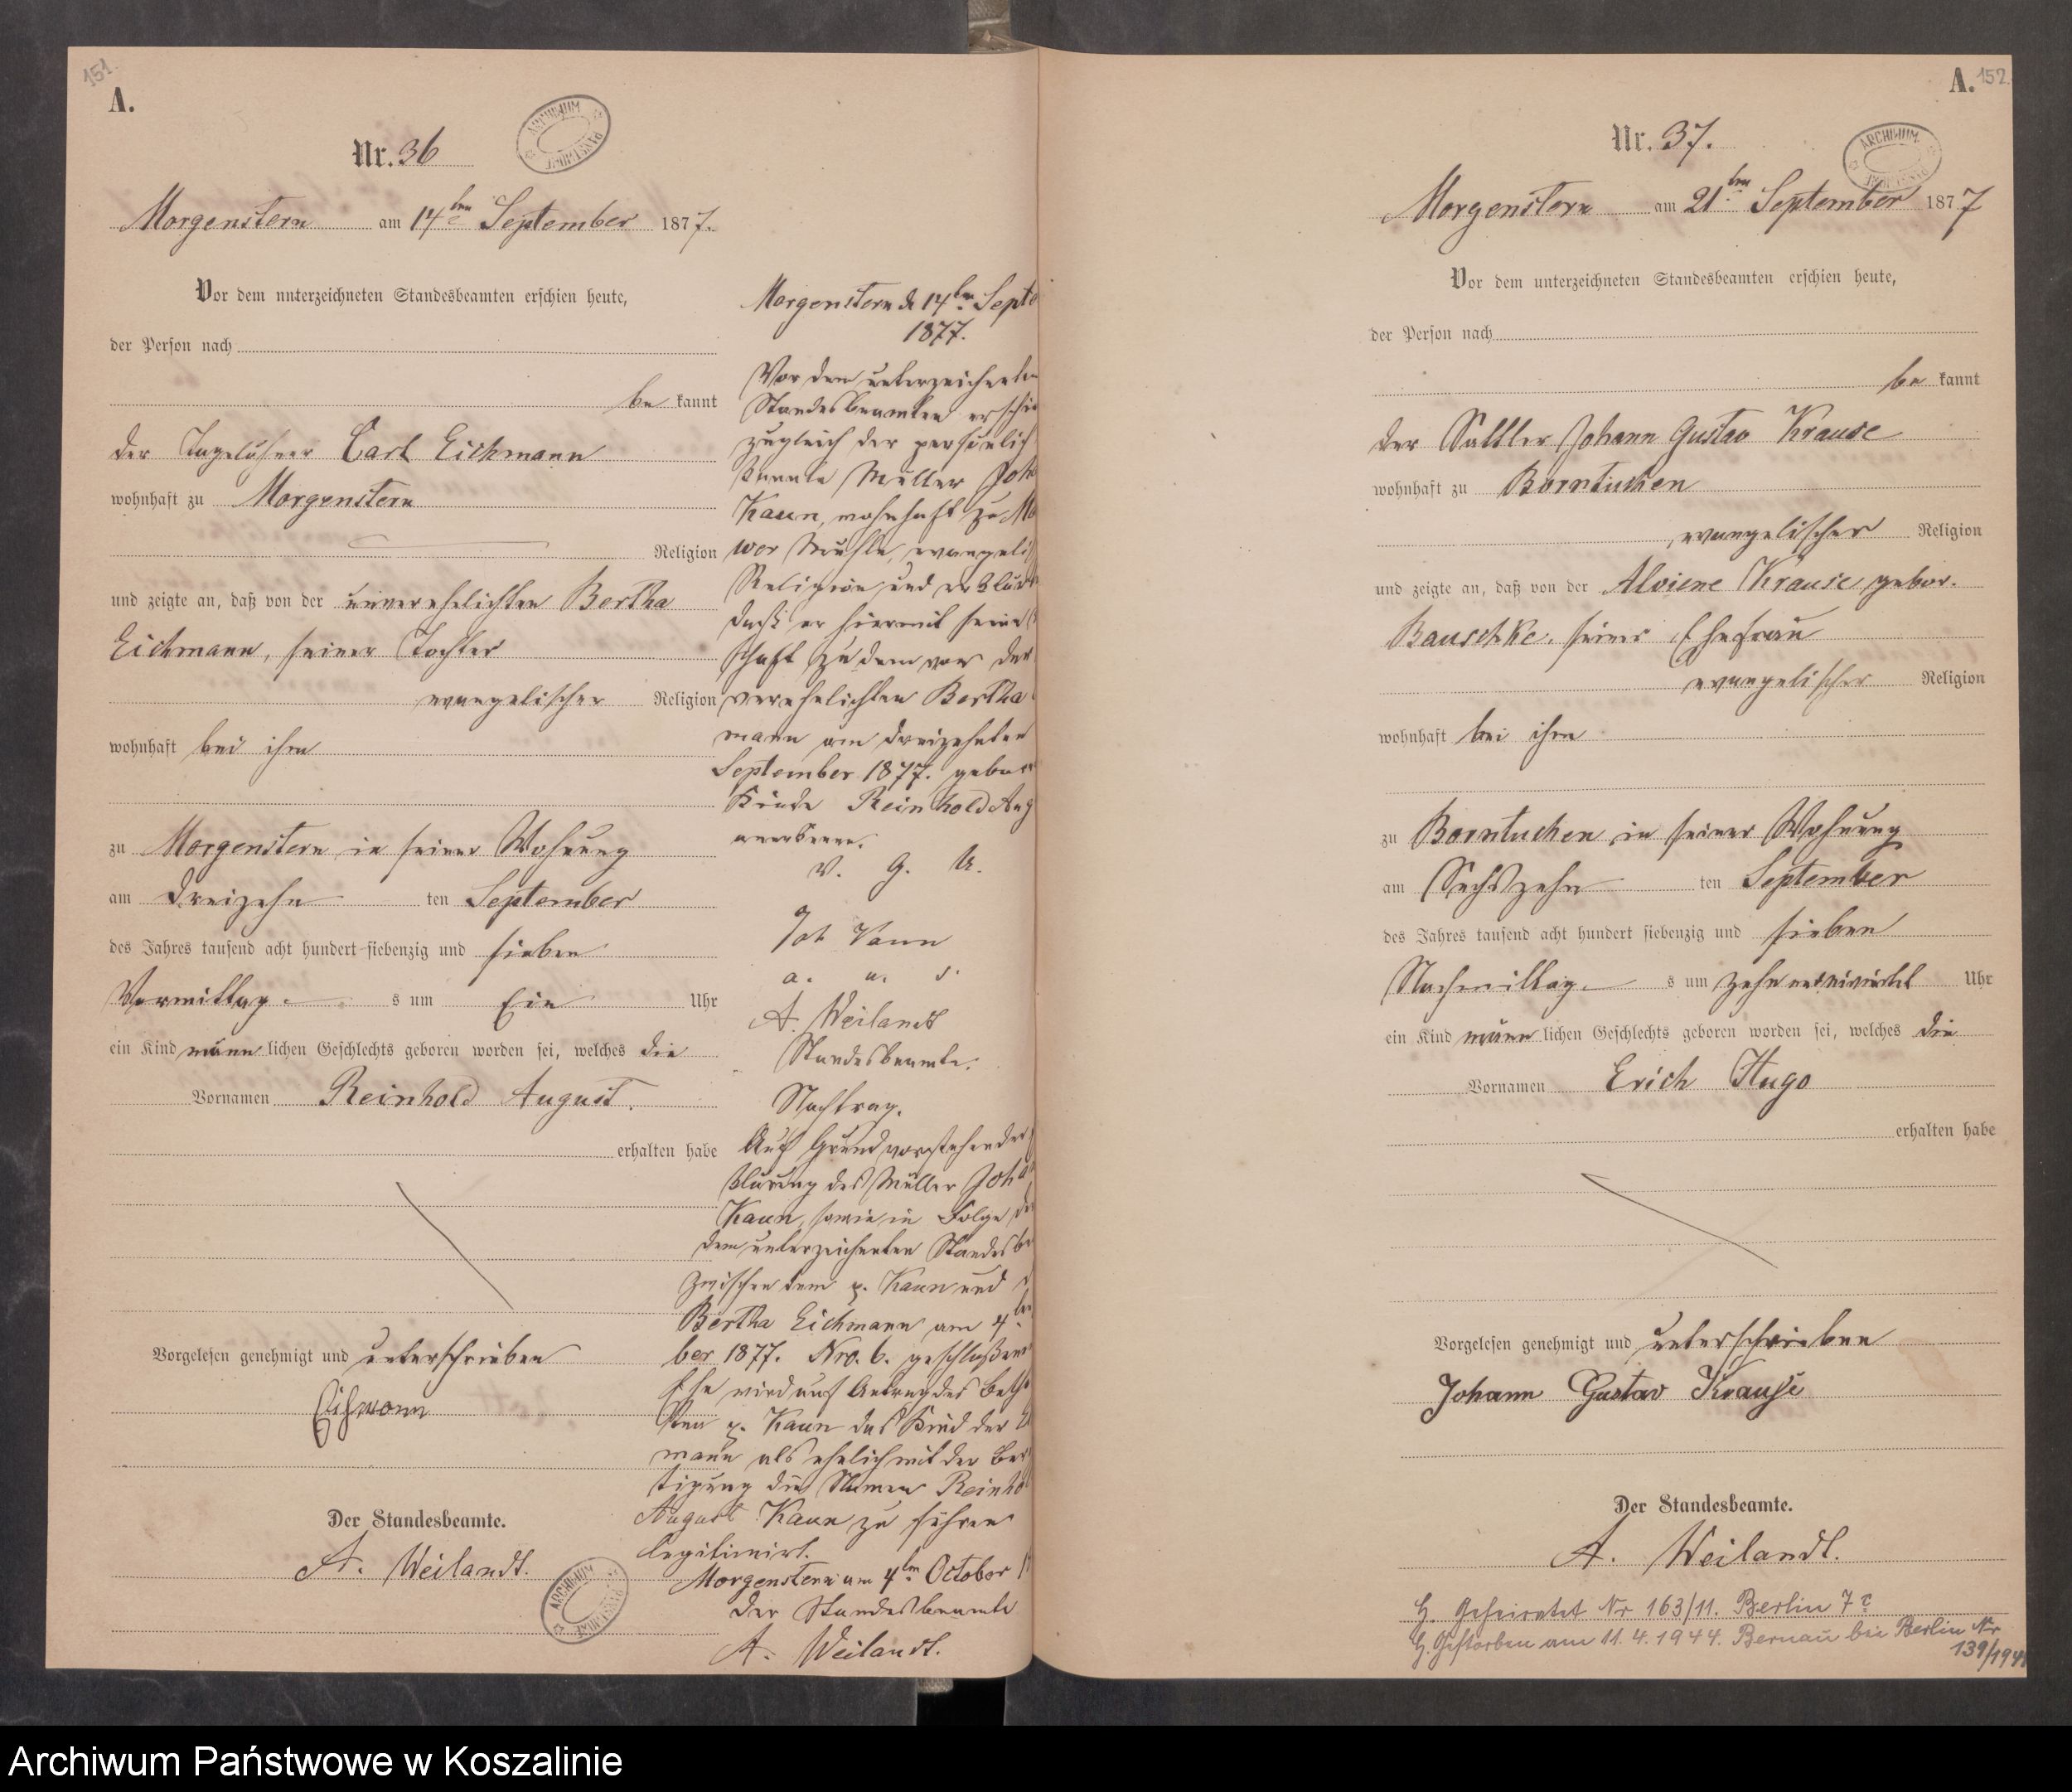 151.
A.
Nr. 36
ARCHIWUM PAŃSTWOWE
Morgenstern am 14ten September 1877.
Vor dem unterzeichneten Standesbeamten erschien heute,
der Person nach
be kannt
der Tagelöhner Carl Eichmann
wohnhaft zu Morgenstern
Religion
und zeigte an, daß von der unverehelichten Bertha
Eichmann, seiner Tochter
evangelischer Religion
wohnhaft bei ihm
zu Morgenstern in seiner Wohnung
am dreizehn ten September
des Jahres tausend acht hundert siebenzig und sieben
Vormittag s um Ein Uhr
ein Kind männ lichen Geschlechts geboren worden sei, welches die
Vornamen Reinhold August.
erhalten habe
Vorgelesen genehmigt und unterschrieben
Eichmann
Der Standesbeamte.
A. Weilandt.
ARCHIWUM PAŃSTWOWE
Morgenstern d 14ten Septe
1877.
Vor dem unterzeichneten
Standesbeamten erschie
zugleich der persönlich
kannte Müller Joh
Kaun, wohnhaft zu Mo
wer Mühle, evangelis
Religion und erklär
daß er hiermit seine
schaft zu dem von der
verehelichten Bertha
mann am dreizehnten
September 1877. gebor
Kinde Reinhold Aug
anerkenne.
V. G. U.
Joh Kaun
a. u. s.
A. Weilandt
Standesbeamte.
Nachtrag.
Auf Grund vorstehender
klärung des Müller Joha
Kaun, sowie in Folge de
dem unterzeichneten Standesbe
zwischen dem p. Kaun und d
Bertha Eichmann am 4ten
ber 1877. Nro. 6. geschloßenen
Ehe wird auf Antrag des
p. Kaun das Kind der E
mann als ehelich mit der Ber
tigung die Namen Reinho
August Kaun zu führen
legitimirt.
Morgenstern am 4ten October 1
Der Standesbeamte
A. Weilandt.
A. 152.
Nr. 37.
ARCHIWUM PAŃSTWOWE
Morgenstern am 21ten September 1877
Vor dem unterzeichneten Standesbeamten erschien heute,
der Person nach
be kannt
der Sattler Johann Gustav Krause
wohnhaft zu Borntuchen
evangelischer Religion
und zeigte an, daß von der Alviene Krause gebor.
Bauschke, seiner Ehefrau
evangelischer Religion
wohnhaft bei ihm
zu Borntuchen in seiner Wohnung
am Sechszehn ten September
des Jahres tausend acht hundert siebenzig und sieben
Nachmittag s um zehn Uhr
ein Kind männ lichen Geschlechts geboren worden sei, welches die
Vornamen Erich Hugo
erhalten habe
Vorgelesen genehmigt und unterschrieben
Johann Gustav Krause
Der Standesbeamte.
A. Weilandt.
H. Geheiratet Nr 163/11. Berlin 7c
G. Gestorben am 11.4.1944. Bernau bei Berlin Nr
139/1944
Archiwum Państwowe w Koszalinie